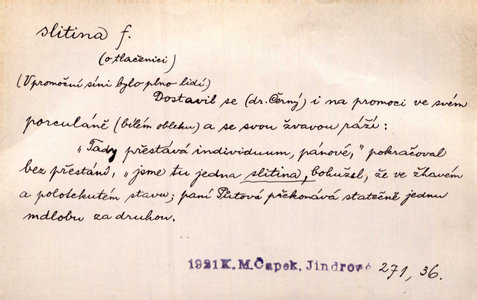 slitina f.
(o tlačenici)
(V promoční síni bylo plno lidí)
Dostavil se (dr. Černý) i na promoci ve svém
porculáně (bílém obleku) a se svou žvavou ráží:
„Tady přestává individuum, pánové," pokračoval
bez přestání, „jsme tu jedna slitina, bohužel, že ve žhavém
a polotekutém stavu; paní Pátová překonává statečně jednu
mdlobu za druhou.
1921 K. M. Čapek, Jindrové 271, 36.